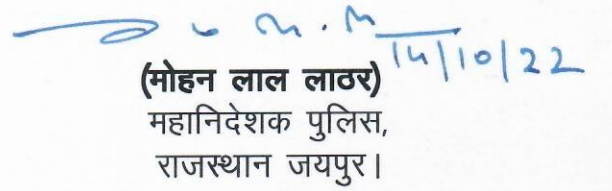 14/10/22
(मोहन लाल लाठर)
महानिदेशक पुलिस,
राजस्थान जयपुर।